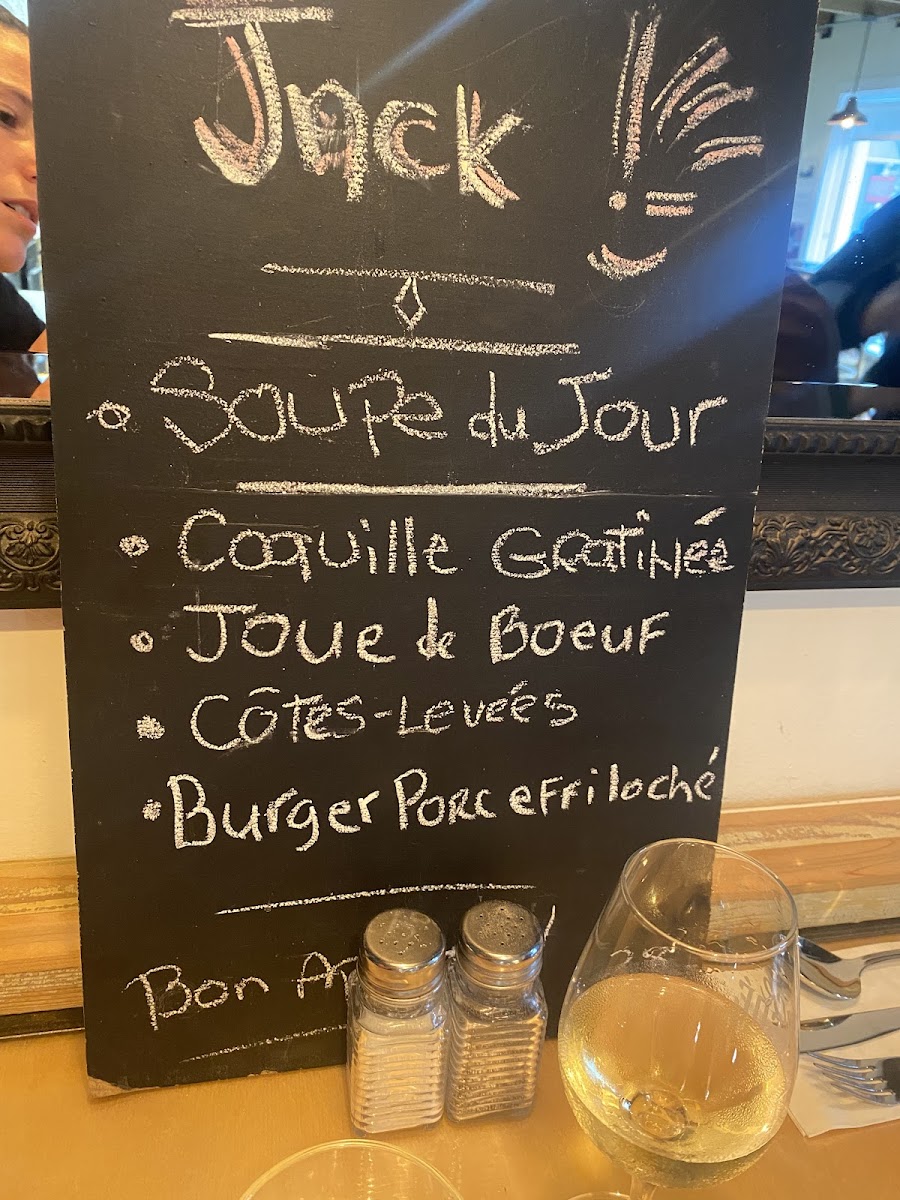 Jack
Soupe du Jour
Coquille Gratinée
Joue de Boeuf
Côtes-Levées
Burger Porc effiloché
Bon